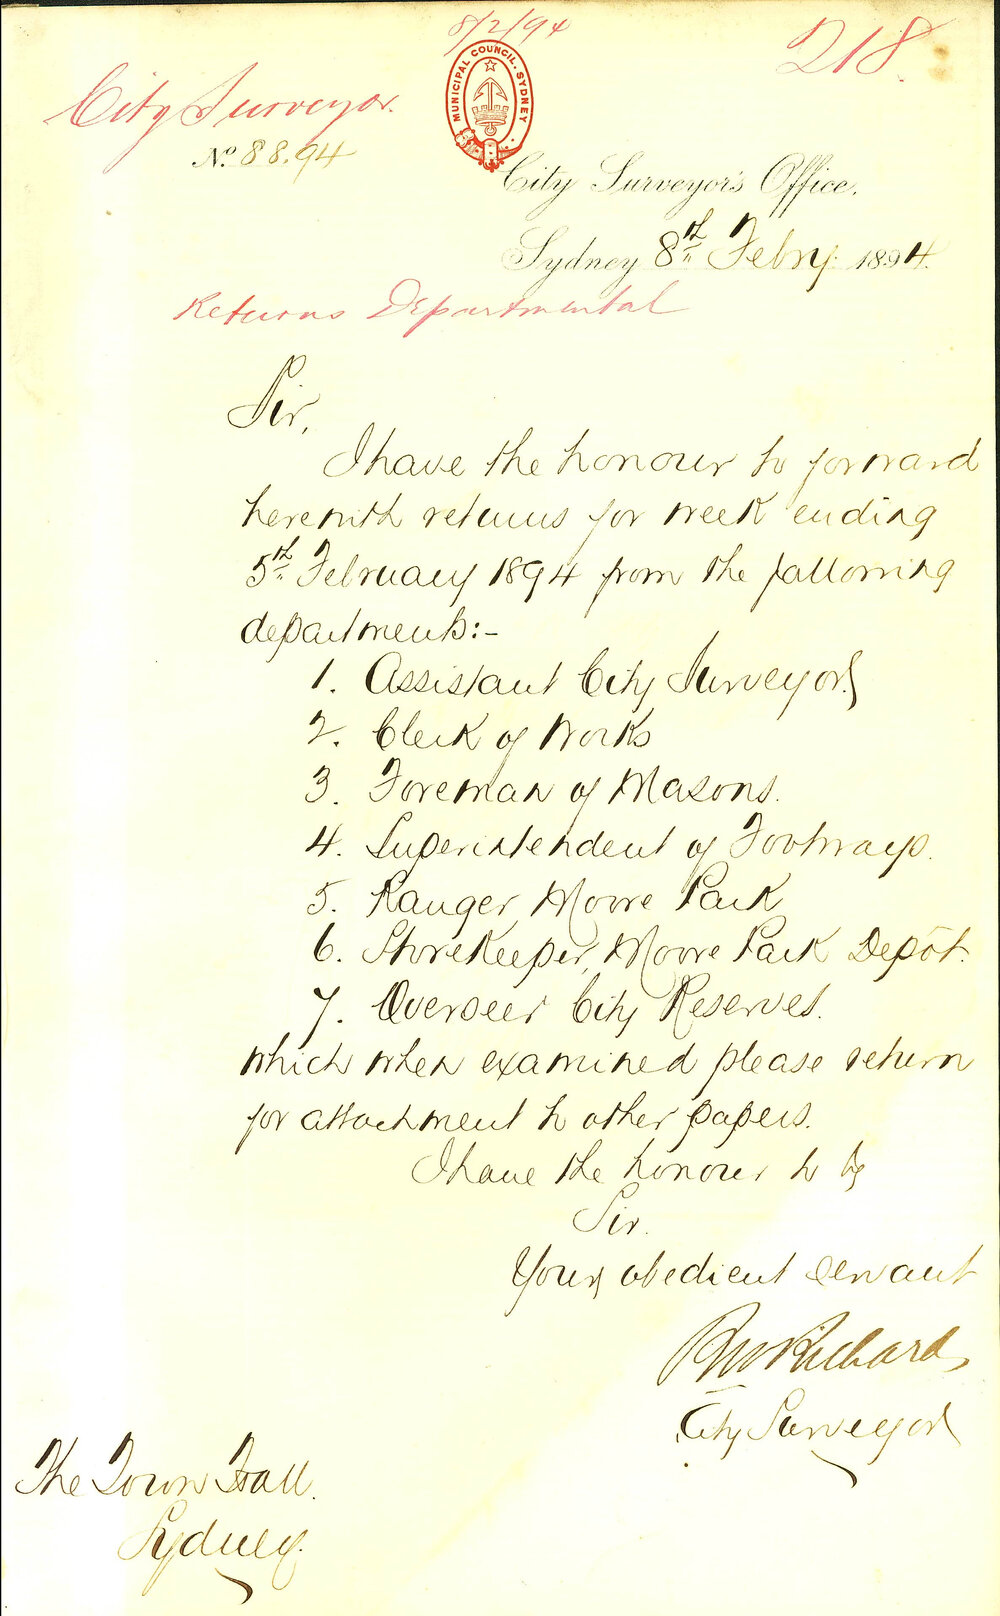 8/2/94
218.
City Surveyor.
MUNICIPAL COUNCIL. SYDNEY
No. 88.94
City Surveyor's Office.
Sydney 8th Febry. 1894.
Returns Departmental
Sir,
I have the honour to forward
herewith returns for week ending
5th February 1894 from the following
departments:-
1. Assistant City Surveyor
2. Clerk of Works
3. Foreman of Masons.
4. Superintendent of Footways.
5. Ranger, Moore Park
6. Storekeeper, Moore Park Depôt.
7. Overseer City Reserves.
which when examined please return
for attachment to other papers.
I have the honour to be
Sir.
Your obedient servant
RW Richards
City Surveyor
The Town Hall.
Sydney.